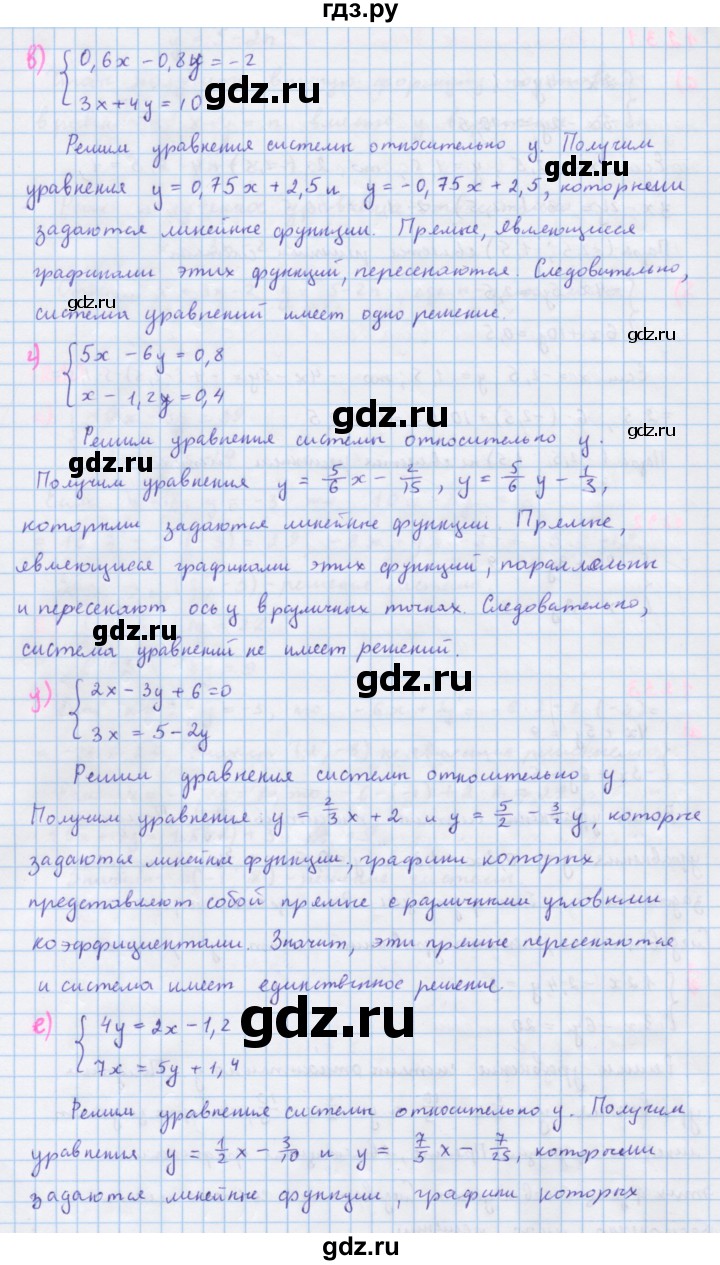 гдз.ру
в) { 0,6x - 0,8y = -2
3x + 4y = 10
gdz.ru
Решим уравнения системы относительно y. Получим
gdz.ru
уравнения y = 0,75x + 2,5 и y = -0,75x + 2,5, которыми
задаются линейные функции. Прямые, являющиеся
графиками этих функций, пересекаются. Следовательно,
gdz.ru
система уравнений имеет одно решение.
gdz.ru
г) { 5x - 6y = 0,8
x - 1,2y = 0,4
gdz.ru
Решим уравнения системы относительно y.
gdz.ru
Получим уравнения y = 5/6 x - 2/15, y = 5/6 y - 1/3,
которыми задаются линейные функции. Прямые,
являющиеся графиками этих функций, параллельны
и пересекают ось y в различных точках. Следовательно,
gdz.ru
система уравнений не имеет решений.
gdz.ru
д) { 2x - 3y + 6 = 0
3x = 5 - 2y
Решим уравнения системы относительно y.
Получим уравнения y = 2/3 x + 2 и y = 5/2 - 3/2 y, которые
задаются линейные функции, графики которых
представляют собой прямые с различными угловыми
коэффициентами. Значит, эти прямые пересекаются
и система имеет единственное решение.
gdz.ru
е) { 4y = 2x - 1,2
7x = 5y + 1,4
Решим уравнения системы относительно y. Получим
уравнения y = 1/2 x - 3/10 и y = 7/5 x - 7/25, которыми
задаются линейные функции, графики которых
gdz.ru